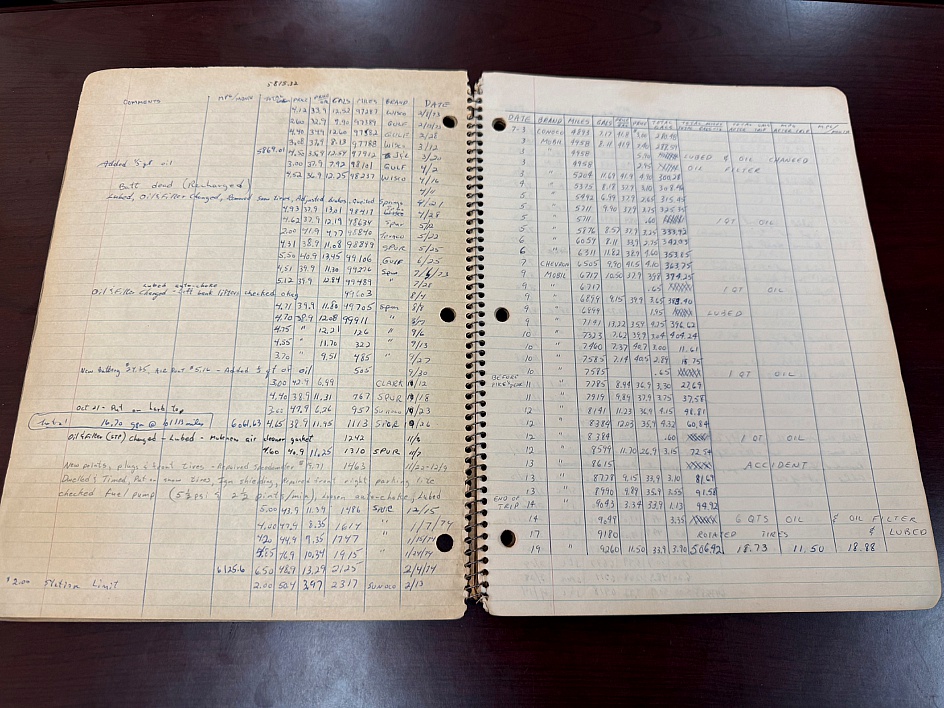 5878.32
COMMENTS MPG/MONTH PRICE GALS MILES BRAND DATE
4.12 33.9 12.52 97287 WISCO 2/1/73
2.60 32.9 9.90 97389 GULF 2/10/73
4.40 34.9 12.60 97582 GULF 2/28
3.08 37.9 8.13 97788 WISCO 3/12
5869.01 4.50 35.9 12.54 97912 3/20
Added ½ qt oil 3.00 37.9 7.92 98101 GULF 4/2
4.52 36.9 12.25 98237 WISCO 4/16
Batt dead (Recharged) 4/4
Lubed, Oil & Filter Changed, Removed Snow Tires, Adjusted brakes 4/21
4.93 37.9 13.01 98417 4/28
4.62 37.9 12.19 98634 Spur 5/2
2.00 41.9 4.77 98840 Texaco 5/22
4.31 38.9 11.08 98899 SPUR 5/25
5.50 40.9 13.45 99106 GULF 6/25
4.51 39.9 11.30 99276 Spur 7/6/73
5.12 39.9 12.84 99489 " 7/28
lubed auto-choke
Oil & Filter Changed - lifters checked okay 99603 8/4
4.71 39.9 11.80 99705 Spur 8/8
4.70 38.9 12.08 99911 "
4.75 " 12.21 126 " 9/6
4.55 " 11.70 322 " 9/13
3.70 " 9.51 485 " 9/27
New battery $24.95, Air Filt $5.16 - Added ½ qt of oil 505 9/30
3.00 42.9 6.99 CLARK 10/12
4.40 38.9 11.31 767 SPUR 10/18
Oct 21 - Put on hard top 3.00 47.9 6.26 957 Sunoco 10/23
Total 16.70 gpm @ 101113 miles 6061.63 4.65 38.9 11.95 1113 SPUR 10/26
Oil & Filter (STP) changed - Lubed - Make new air cleaner gasket 1242 11/6
4.60 40.9 11.25 1310 SPUR 11/7
New points, plugs & front tires - Repaired Speedometer $9.71 1463 11/22-12/9
Dwelled & Timed, Put on snow tires, Ign shielding, Repaired front right parking lite
checked fuel pump (5½ psi & 2½ pints/min), loosen auto-choke, Lubed
5.00 43.9 11.39 1486 SPUR 12/15
4.00 47.9 8.35 1614 " 1/7/74
4.20 44.9 9.35 1747 " 1/15/74
4.85 46.9 10.34 1915 " 1/24/74
6125.6 6.50 48.9 13.29 2125 2/4/74
$2.00 Station Limit 2.00 50.4 3.97 2317 SUNOCO 2/13
DATE BRAND MILES GALS PRICE TOTAL GALS TOTAL MILES TOTAL GALLONS TOTAL AFTER THIS TRIP MPG AFTER TRIP MPG/MONTH
7-3 CONOCO 4893 7.17 41.8 3.00
3 MOBIL 4958 8.11 41.9 3.40
3 " 4958 5.90 LUBED & OIL CHANGED
3 " 4958 2.95 OIL FILTER
3 " 5204 11.69 41.9 4.90 300.28
4 " 5375 8.18 37.9 3.10 308.46
5 " 5442 6.99 37.9 2.65 315.45
5 " 5711 9.90 37.9 3.75 325.35
5 " 5711 .60 1 QT OIL
5 " 5876 8.57 37.9 3.25 333.92
6 " 6059 8.11 33.9 2.75 342.03
6 " 6311 11.82 38.9 4.60 353.85
7 CHEVRON 6505 9.90 41.5 4.10 363.75
9 MOBIL 6717 10.50 37.9 3.98 374.25
9 " 6717 .65 1 QT OIL
9 " 6899 9.15 39.9 3.65 383.40
9 " 6899 1.95 LUBED
9 " 7141 13.22 35.9 4.75 396.62
10 " 7323 7.62 39.9 3.04 404.24
10 " 7460 7.37 40.7 3.00 11.61
10 " 7585 7.14 40.5 2.89 18.75
10 " 7585 .65 1 QT OIL
BEFORE PIKES PEAK 11 " 7785 8.94 36.9 3.30 27.69
11 " 7919 9.89 37.9 3.75 37.58
12 " 8141 11.23 36.9 4.15 48.81
12 " 8384 12.03 35.9 4.32 60.84
12 " 8384 .60 1 QT OIL
12 " 8599 11.70 26.9 3.15 72.54
13 " 8615 ACCIDENT
13 " 8778 9.15 33.9 3.10 81.69
13 " 8990 9.89 35.9 3.55 91.58
END OF TRIP 14 " 9043 3.34 33.9 1.13 94.92
14 " 9049 3.35 6 QTS OIL & OIL FILTER
17 " 9180 ROTATED TIRES & LUBED
19 " 9260 11.50 33.9 3.90 506.42 18.73 11.50 18.88